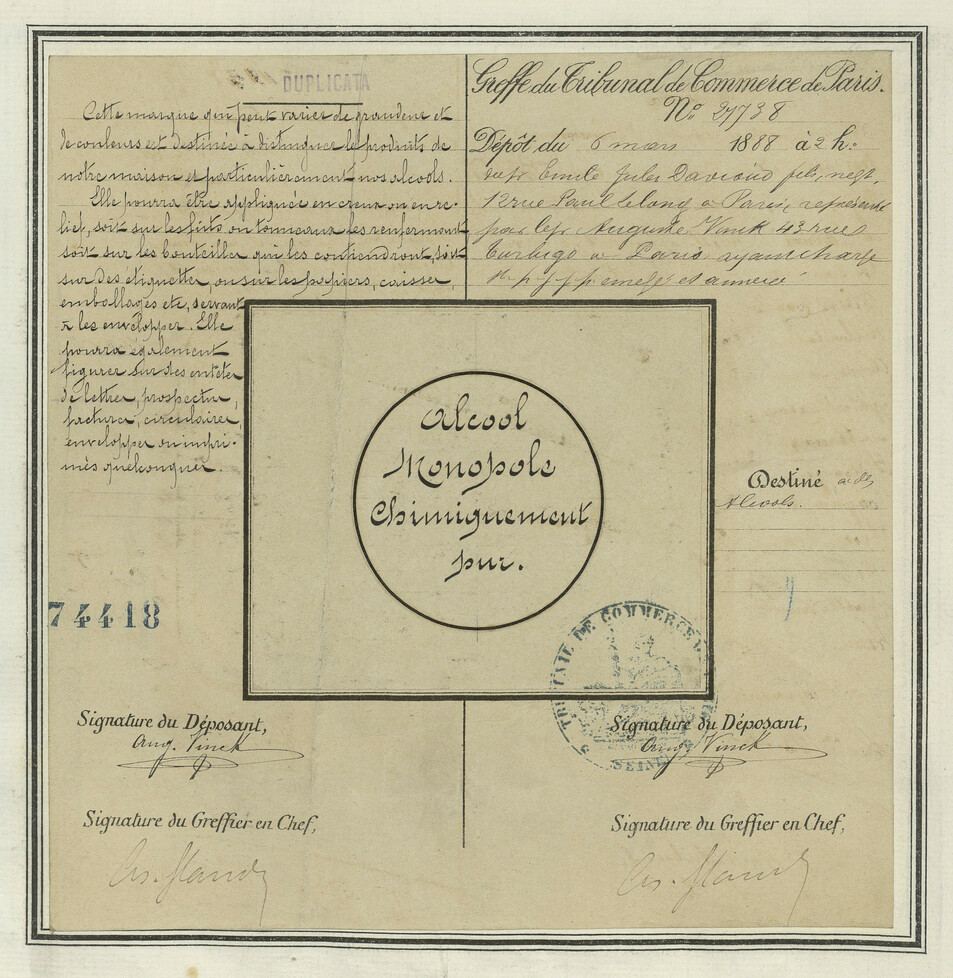 DUPLICATA
Cette marque qui peut varier de grandeur et
de couleurs est destinée à distinguer les produits de
notre maison et particulièrement nos alcools.
Elle pourra être appliquée en creux ou en re-
lief, soit sur les futs ou tonneaux les renfermant
soit sur les bouteilles qui les contiendront, soit
sur des étiquettes, ou sur les papiers, caisses,
emballages etc, servant
à les envelopper. Elle
pourra également
figurer sur des entêtes
de lettres, prospectus,
factures, circulaires,
enveloppes ou impri-
més quelconques.
74418
Signature du Déposant,
Aug. Vinck
Signature du Greffier en Chef,
Greffe du Tribunal de Commerce de Paris.
No 27738
Dépôt du 6 mars 1888 à 2 h.
Emile Jules Davioud fils, negt,
12 rue Paul Lelong à Paris, représenté
par le sr Auguste Vinck 43 rue
Turbigo à Paris ayant charge
et annexé
Alcool
Monopole
Chimiquement
pur.
Destiné à des
Alcools.
TRIBUNAL DE COMMERCE
SEINE
Signature du Déposant,
Aug. Vinck
Signature du Greffier en Chef,